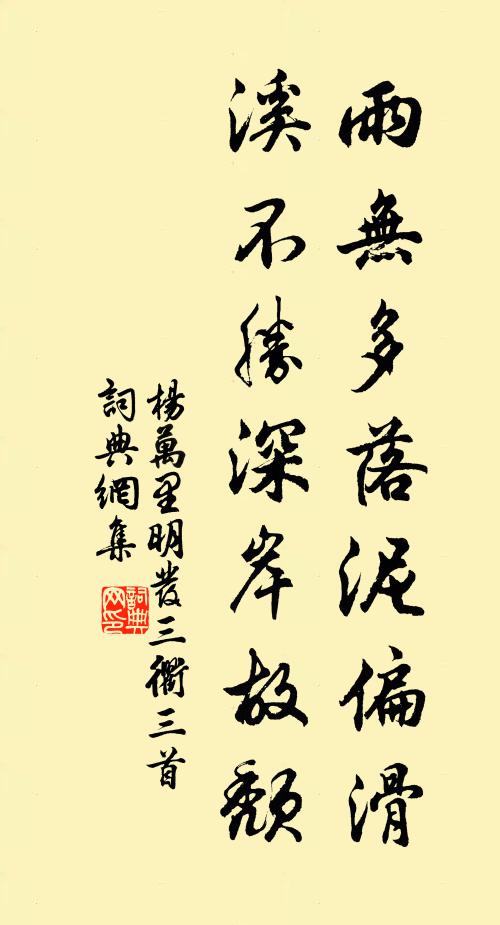 雨無多落泥偏滑
溪不勝深岸故頽
楊萬里明發三衢三首
詞典網集
詞典网印